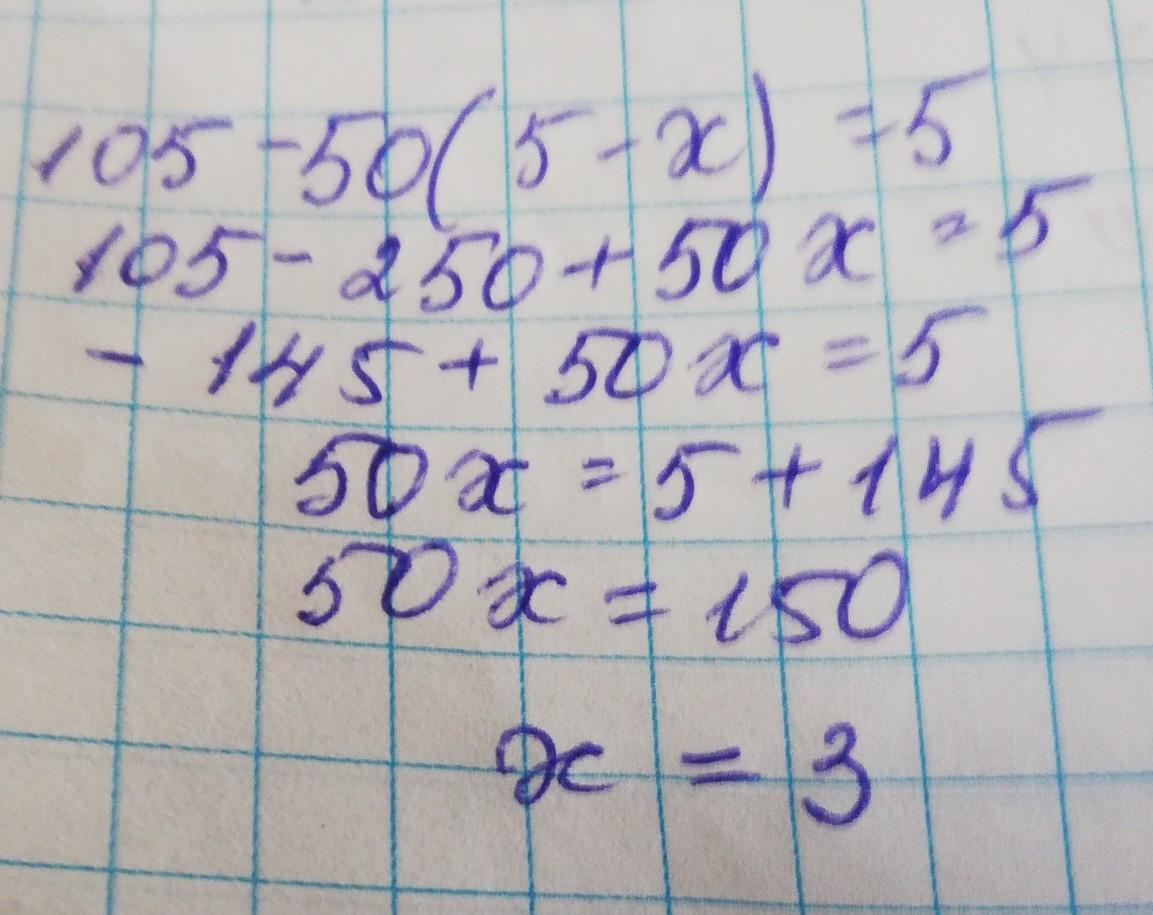 105-50(5-x)=5
105-250+50x=5
-145+50x=5
50x=5+145
50x=150
x=3